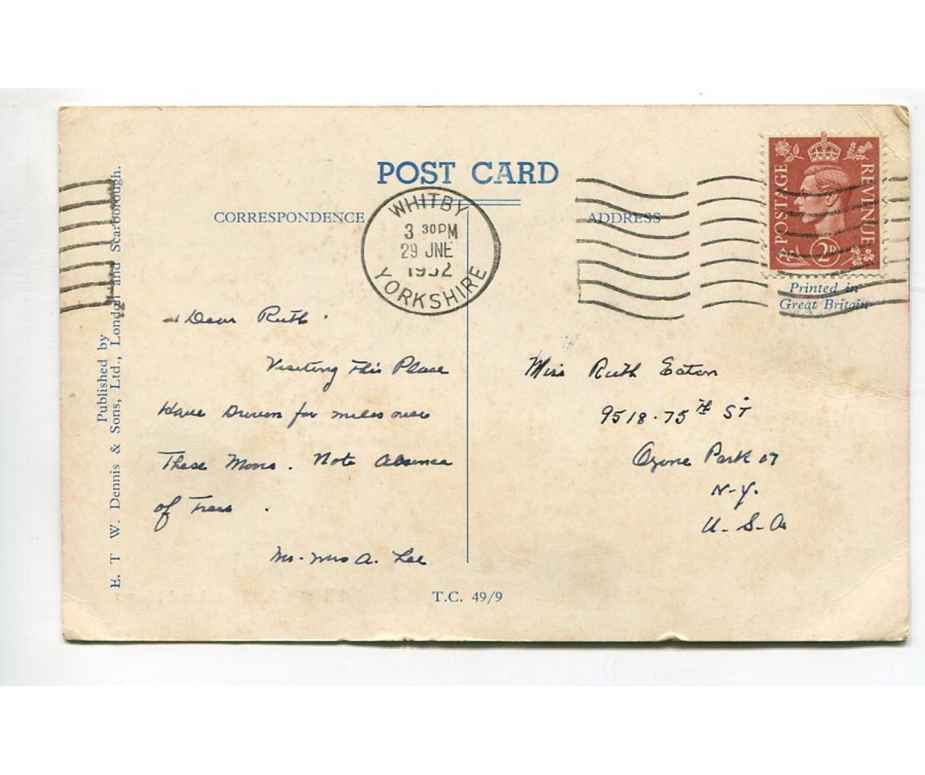 POST CARD
CORRESPONDENCE
ADDRESS
WHITBY
3 30PM
29 JNE
1952
YORKSHIRE
POSTAGE
REVENUE
2D
Printed in
Great Britain
Published by
E. T W. Dennis & Sons, Ltd., London and Scarborough.
Dear Ruth
Visiting This Place
Have Driven for miles over
These Moors. Note Absence
of Trees.
Mr. Mrs A. Lee
Miss Ruth Eaton
9518-75th ST
Ozone Park 17
N-Y.
U-S-A
T.C. 49/9